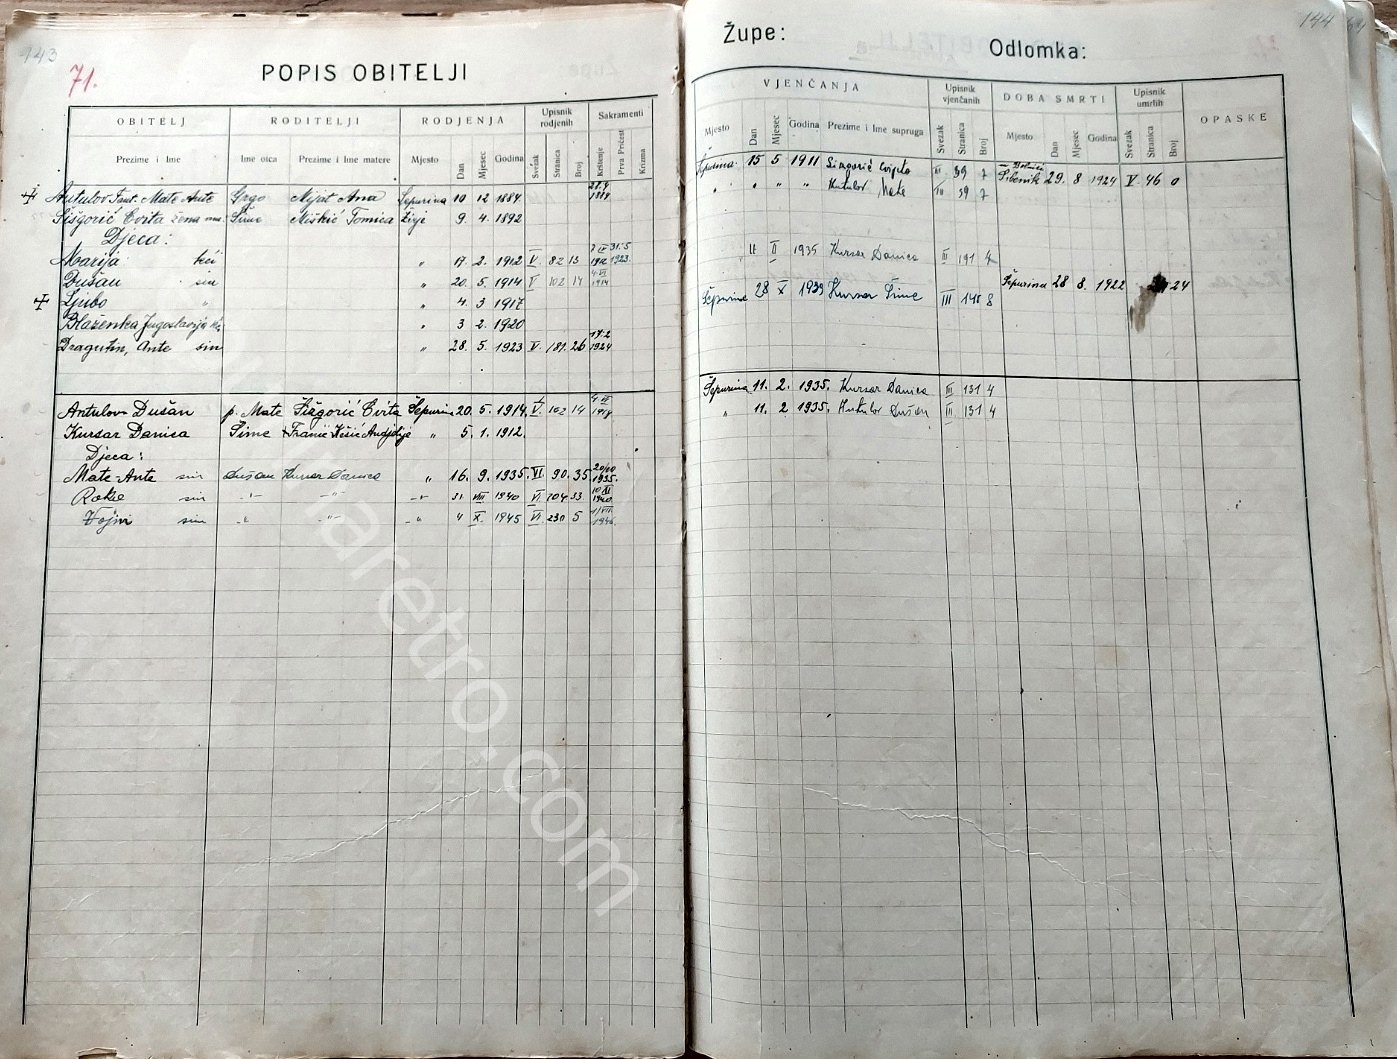 143
71.
POPIS OBITELJI
OBITELJ RODITELJI RODJENJA Upisnik rodjenih Sakramenti
Prezime i Ime Ime oca Prezime i Ime matere Mjesto Dan Mjesec Godina Svezak Stranica Broj Krštenje Prva Pričest Krizma
Antulov Fant. Mate Ante Grgo Mijat Ana Šepurina 10 12 1884
Šišgorić Cvita žena mu Šime Miškić Tomica Živi 9 4. 1892
Djeca:
Marija kći " 17. 2. 1912 V. 82 13 1912 31.5 1923.
Dušan sin " 20. 5. 1914 V 102 14 1914
Ljubo " " 4. 3 1917
Blaženka Jugoslavija " 3 2. 1920
Dragutin, Ante sin " 28. 5. 1923 V. 187. 26 17.2 1924
Antulov Dušan p. Mate Šižgorić Cvita Šepurina 20. 5. 1914. V. 102 14
Kursar Danica Šime Franić Kešić Andjelija " 5. 1. 1912.
Djeca:
Mate-Ante sin Dušan Kursar Danica " 16. 9. 1935. VI 90. 35 20/10 1935.
Roko sin -"- -"- -"- 31. VIII 1940 VI 204 33. 10 XI 1940
Vojni sin -"- -"- -"- 4 X. 1945 VI 230 5 1/VII 1946.
144
Župe:
Odlomka:
VJENČANJA Upisnik vjenčanih DOBA SMRTI Upisnik umrlih OPASKE
Mjesto Dan Mjesec Godina Prezime i Ime supruga Svezak Stranica Broj Mjesto Dan Mjesec Godina Svezak Stranica Broj
Šepurina 15 5 1911 Šizgorić Cvijeta III 39 7 u Bolnici Šibenik 29. 8 1924 V 46 0
" " " " Kutulov Mate III 39 7
" 11 II 1935 Kursar Danica III 131 4
Šepurina 28 X 1939 Kursar Šime III 145 8 Šepurina 28 8. 1922 24
Šepurina 11. 2. 1935. Kursar Danica III 131 4
" 11. 2 1935. Kutulov Dušan III 131 4